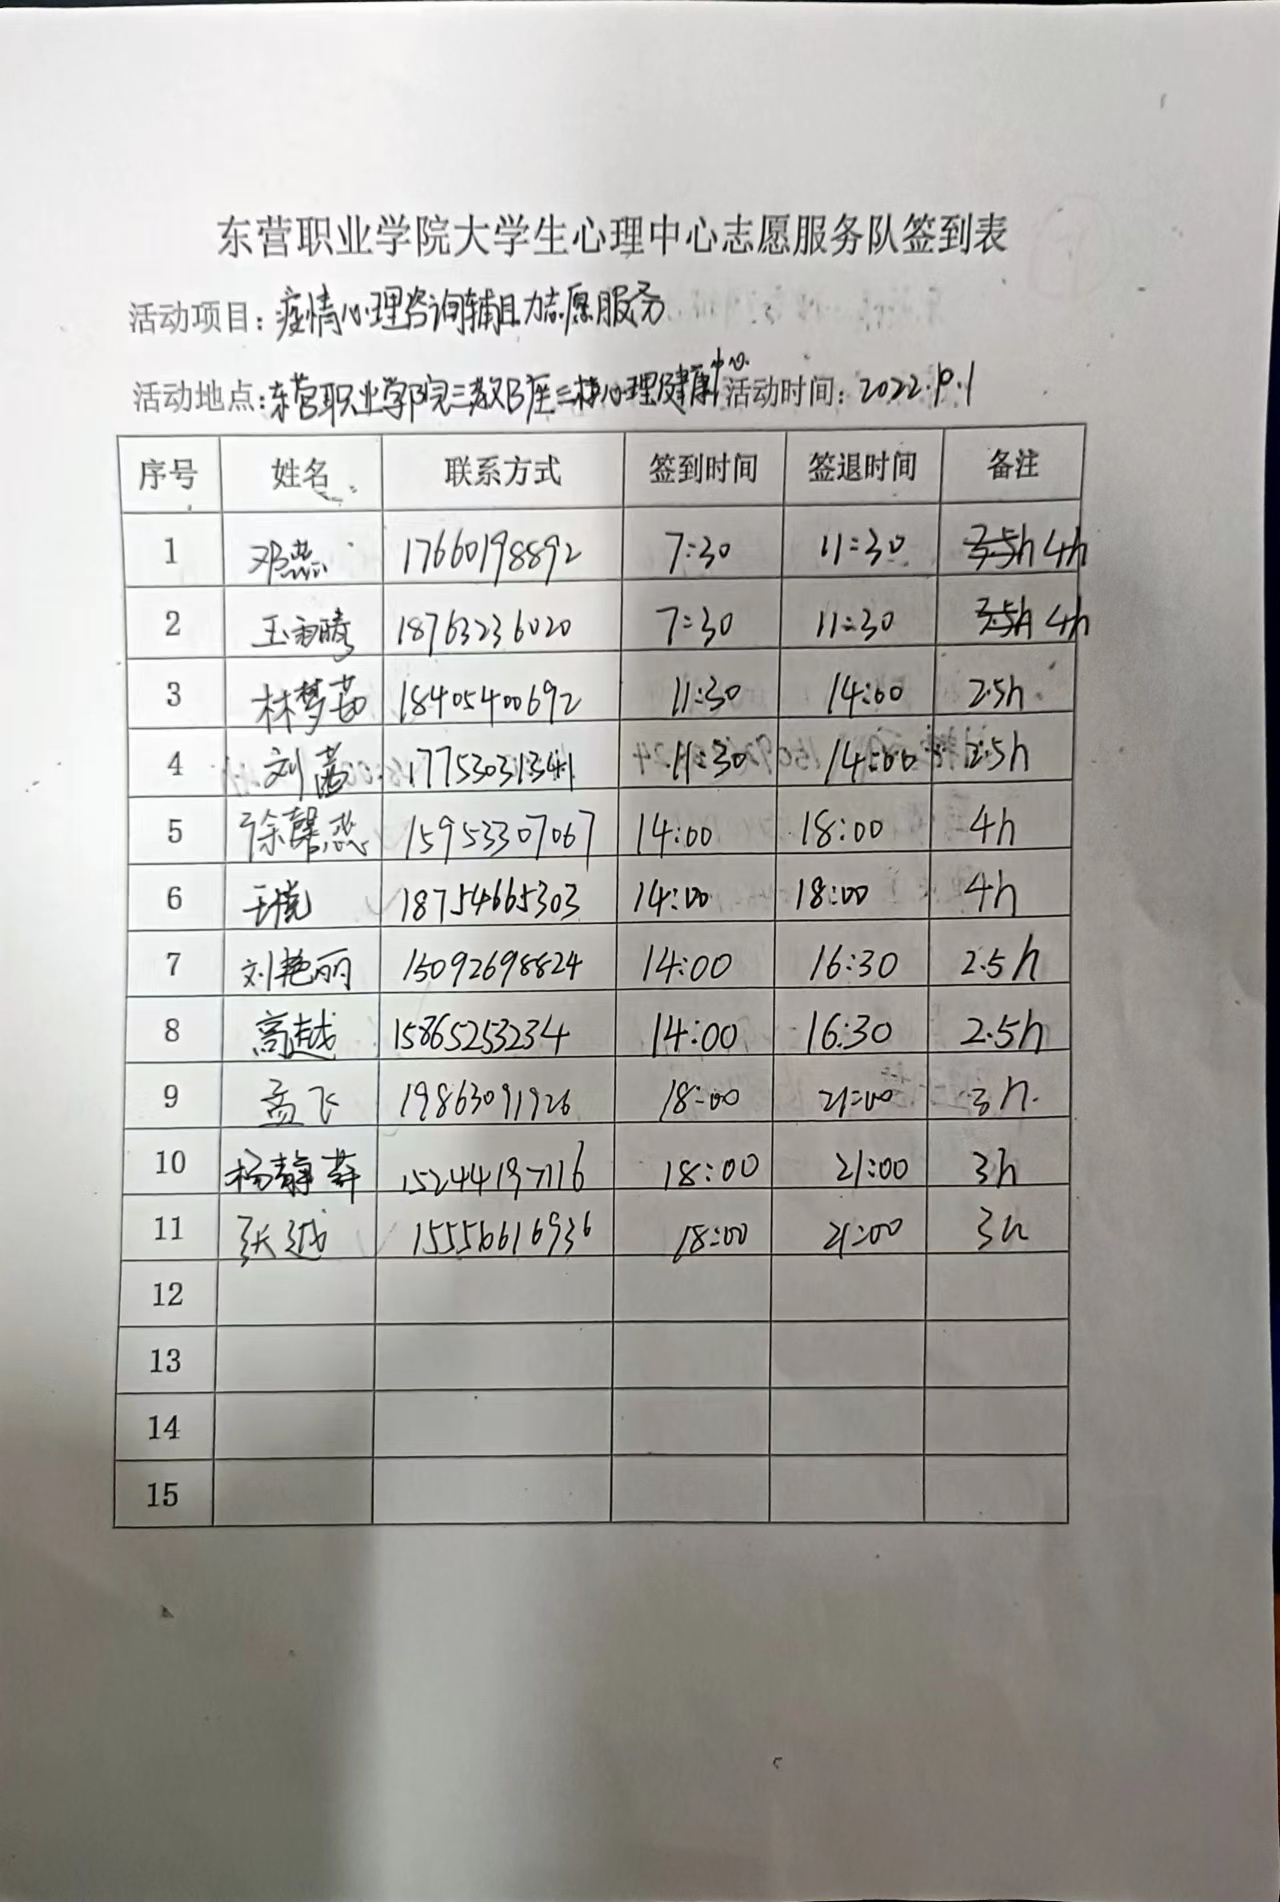 东营职业学院大学生心理中心志愿服务队签到表
活动项目：疫情心理咨询辅助志愿服务
活动地点：东营职业学院三教B座三楼心理健康中心 活动时间：2022.10.1
序号 姓名 联系方式 签到时间 签退时间 备注
1 邓燕 17660198892 7:30 11:30 3.5h 4h
2 王雨晴 18763236020 7:30 11:30 3.5h 4h
3 林梦茹 18405400692 11:30 14:00 2.5h
4 刘 17753031341 11:30 14:00 2.5h
5 徐馨悉 15953307067 14:00 18:00 4h
6 王悦 18754665303 14:00 18:00 4h
7 刘艳丽 15092698824 14:00 16:30 2.5h
8 高越 15865253234 14:00 16:30 2.5h
9 孟飞 19863091926 18:00 21:00 3h.
10 杨静 15244197116 18:00 21:00 3h
11 张越 15556616936 18:00 21:00 3h
12
13
14
15